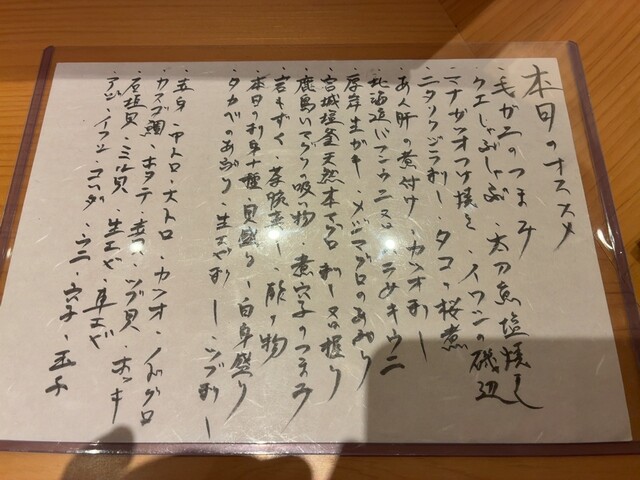 本日のオススメ
・毛がニのつまみ
・クエしゃぶしゃぶ・太刀魚塩焼き
・マナガツオつけ焼き・イワシの磯辺
・ニタリクジラ刺し・タコの桜煮
・あん肝の煮付け・カツオ刺し
・北海道バフンウニ又はムラサキウニ
・厚岸生ガキ・メジマグロのあぶり
・宮城塩釜天然本マグロ刺し又は握り
・鹿島いマグリの吸い物・煮穴子のつまみ
・岩もずく・茶碗蒸し・酢の物
・本日の刺身十種・貝盛り・白身盛り
・タカベのあぶり・生エビ刺し・ツブ刺し
・赤身・中トロ・大トロ・カツオ・ノドグロ
・カスゴ鯛・ホタテ・赤貝・ツブ貝・ホッキ
・石垣貝・ミル貝・生エビ・車エビ
・アジ・イワシ・コハダ・ウニ・穴子・玉子